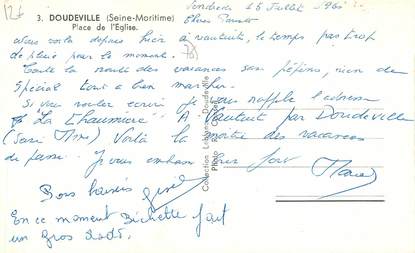 126
3. DOUDEVILLE (Seine-Maritime)
Place de l'Église.
Vendredi 15 Juillet 1960
Chers Parents
Nous voilà depuis hier à Vautuit, le temps pas trop
de pluie pour le moment.
Toute la route des vacances sans pépins, rien de
spécial tout a bien marcher.
Si vous voulez écrire je vous rappelle l'adresse
"La Chaumière" A. Vautuit par Doudeville
(Seine Mme) Voilà la moitié des vacances
de passé. Je vous embrasse bien fort
Bons baisers
En ce moment Bichette fait
un gros dodo.
Collection Doudeville
Photo R.